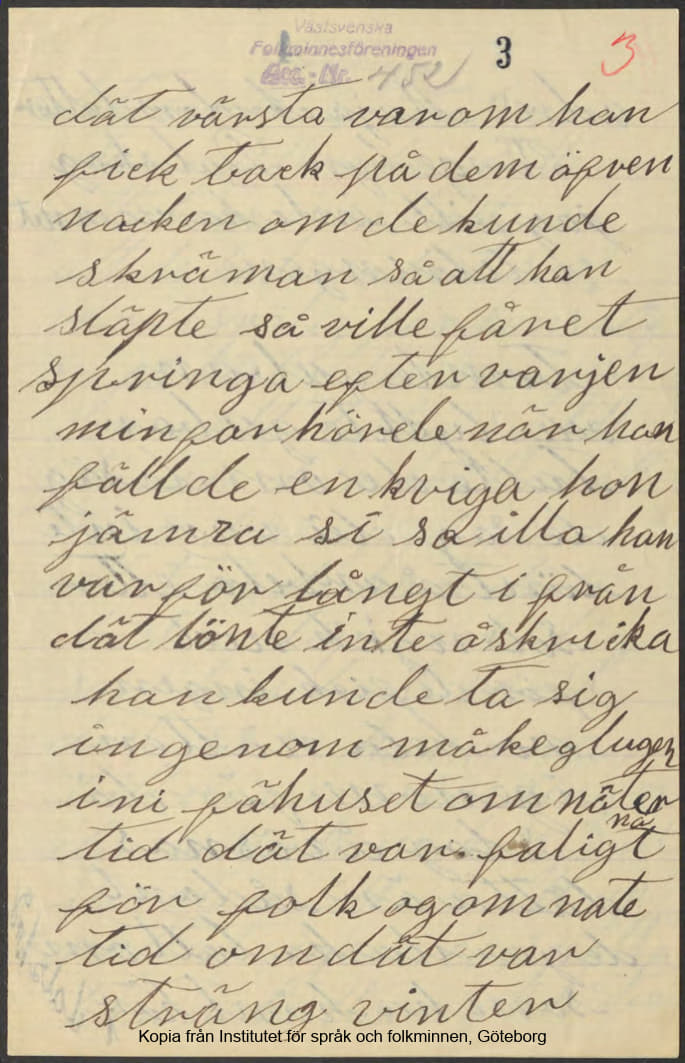 Västsvenska
Folkminnesföreningen
Acc.-Nr. 452
3
3
dät värsta var om han
fick tack på dem öfven
nacken om de kunde
skräman så att han
släpte så ville fåret
springa efter varjen
min far hörde när han
fällde en kviga hon
jämra si så illa han
var för långt i från
dät lönte inte å skricka
han kunde ta sig
in genom måkeglugen
in i fähuset om näter
nä
tid dät var faligt
för folk og om nate
tid om dät var
sträng vinter
Kopia från Institutet för språk och folkminnen, Göteborg